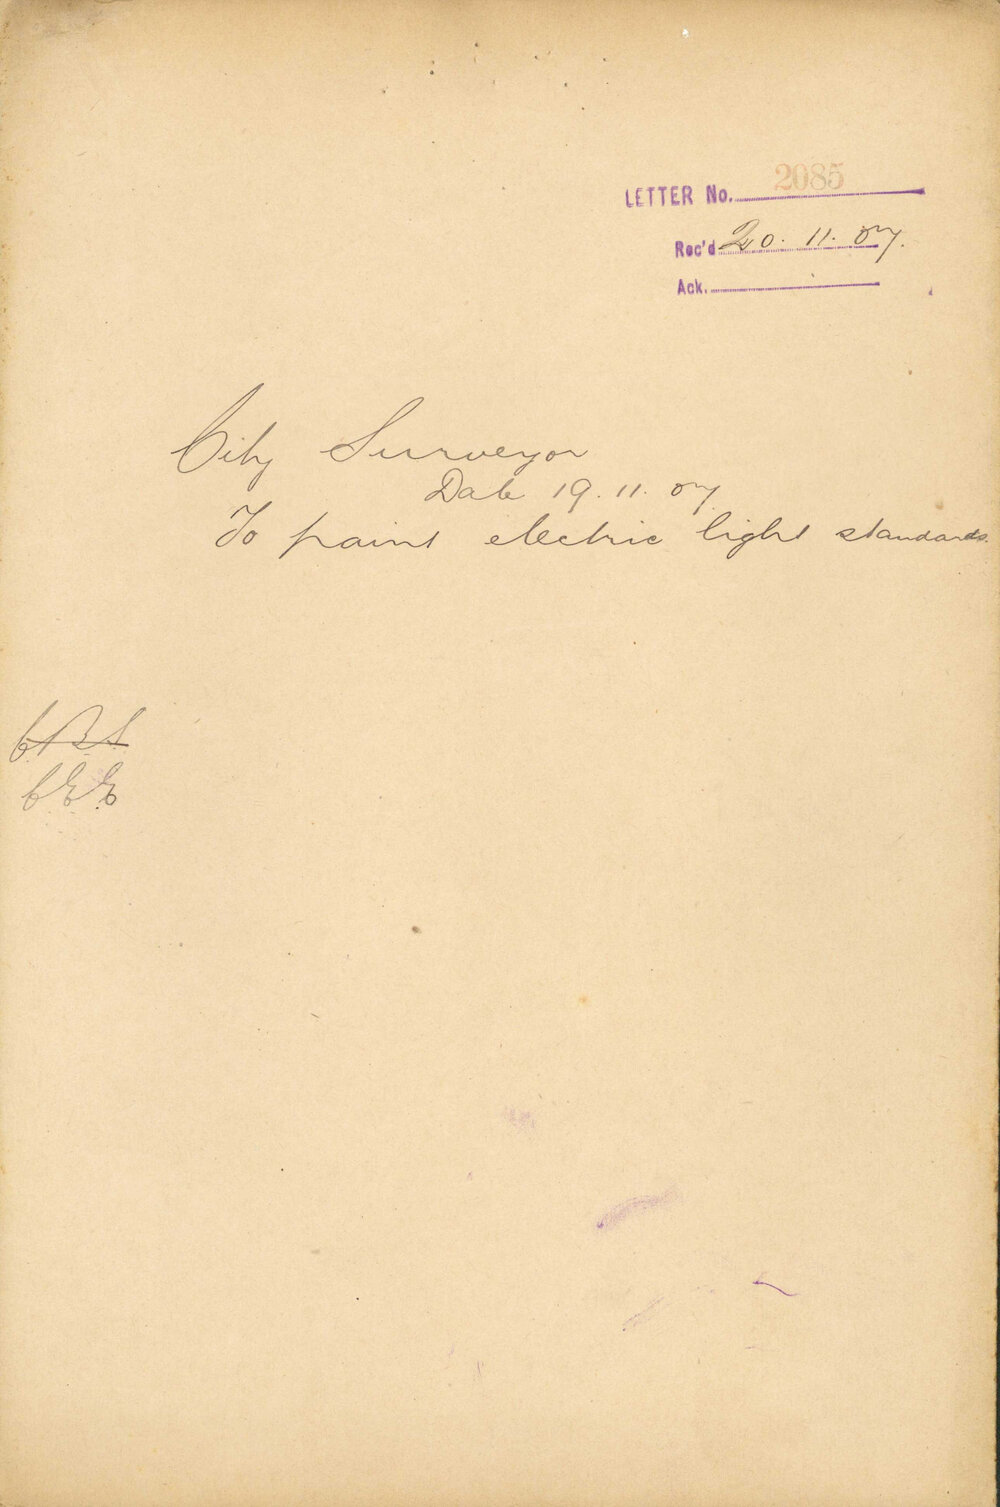 LETTER No. 2085
Rec'd 20. 11. 07.
Ack.
City Surveyor
Date 19. 11. 07
To paint electric light standards.
CBS
CEE